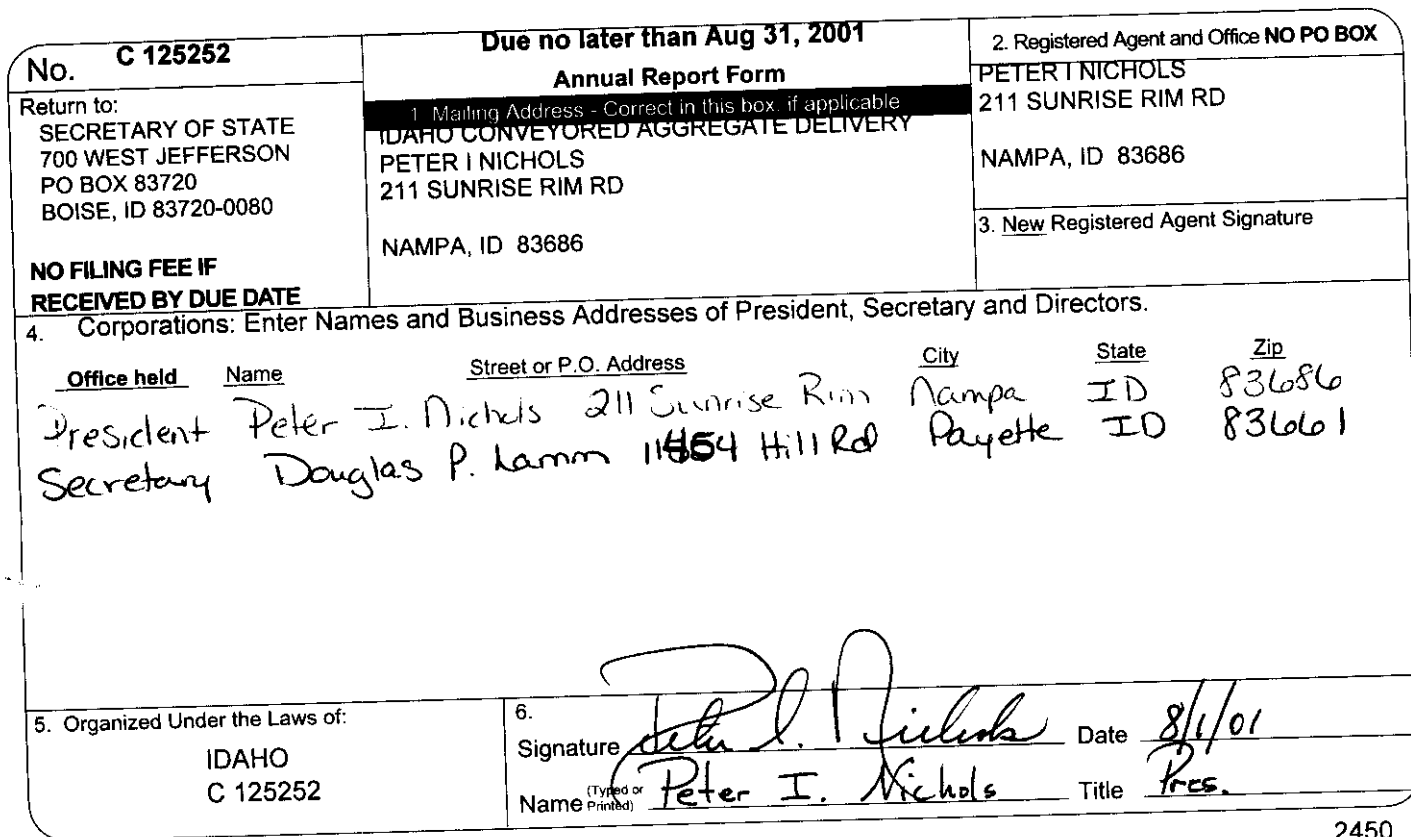 No. C 125252
Return to:
SECRETARY OF STATE
700 WEST JEFFERSON
PO BOX 83720
BOISE, ID 83720-0080
NO FILING FEE IF
RECEIVED BY DUE DATE
Due no later than Aug 31, 2001
Annual Report Form
1 Mailing Address - Correct in this box, if applicable
IDAHO CONVEYORED AGGREGATE DELIVERY
PETER I NICHOLS
211 SUNRISE RIM RD
NAMPA, ID 83686
2. Registered Agent and Office NO PO BOX
PETER I NICHOLS
211 SUNRISE RIM RD
NAMPA, ID 83686
3. New Registered Agent Signature
4. Corporations: Enter Names and Business Addresses of President, Secretary and Directors.
Office held Name Street or P.O. Address City State Zip
President Peter I. Nichols 211 Sunrise Rim Nampa ID 83686
Secretary Douglas P. Lamm Hill Rd Payette ID 83661
5. Organized Under the Laws of:
IDAHO
C 125252
6.
Signature Peter I. Nichols Date 8/1/01
Name (Typed or Printed) Peter I. Nichols Title Pres.
2450